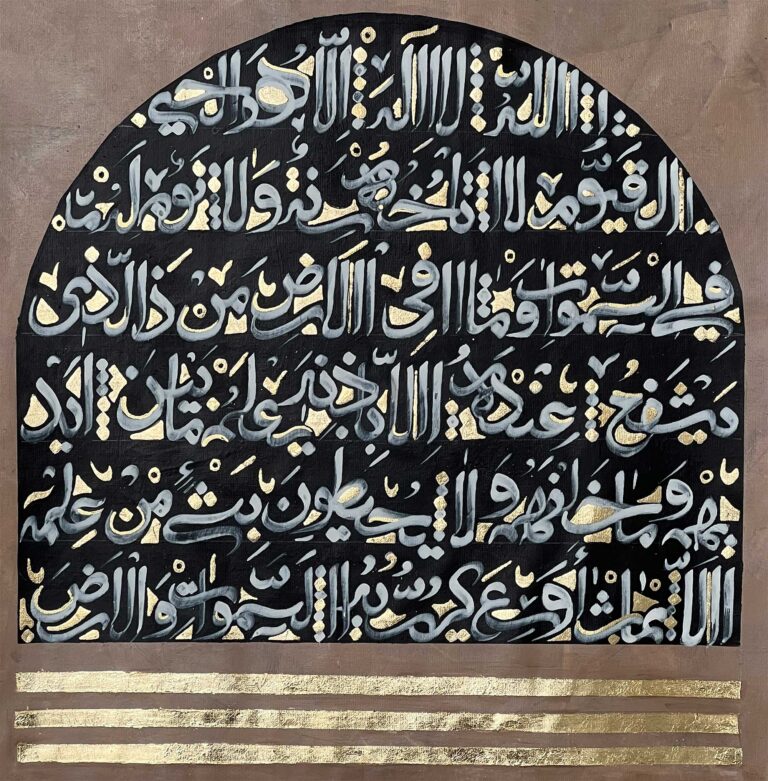 الله لا اله الا هو الحي
القيوم لا تأخذه سنة ولا نوم له ما
في السموات وما في الارض من ذا الذي
يشفع عنده الا باذنه يعلم ما بين ايد
يهم وما خلفهم ولا يحيطون بشئ من علمه
الا بما شاء وسع كرسيه السموات والارض